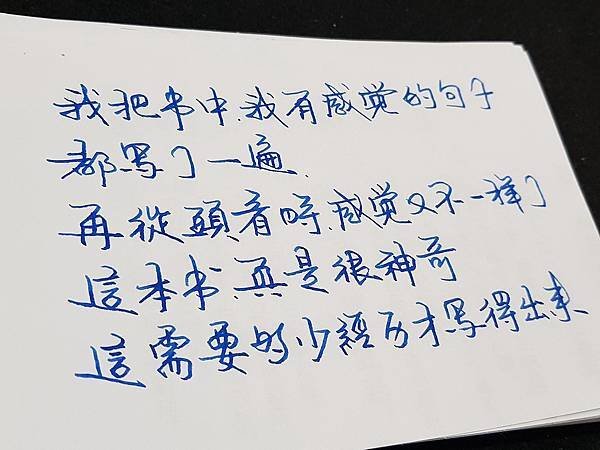 我把书中,我有感觉的句子
都写了一遍.
再從頭看時,感觉又不一样了
這本书,真是很神奇
這需要多少經历才写得出来